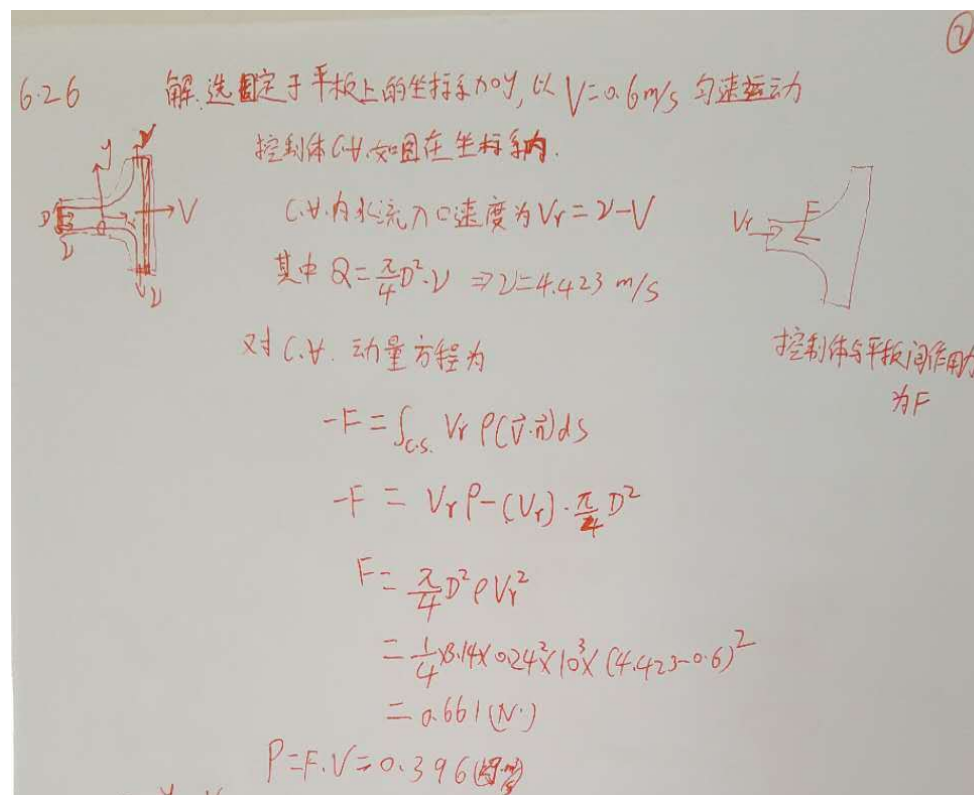 ②
6.26 解.选固定于平板上的坐标系xoy,以V=0.6m/s 匀速运动
控制体C.V.如图在坐标系内.
C.V.内水流入口速度为Vr=v-V
其中 Q=π/4 D²·v ⇒v=4.423 m/s
对C.V. 动量方程为
-F=∫c.s. Vr ρ(v⃗·n⃗)ds
-F = Vr ρ-(Vr)·π/4 D²
F= π/4 D²ρVr²
=1/4×3.14×0.24²×10³×(4.423-0.6)²
=0.661(N·)
P=F.V=0.396
y
V
D
v
v
O
Vr
F
控制体与平板间作用力
为F